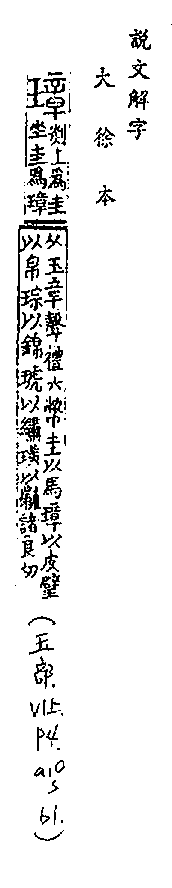 說文解字
大徐本
璋
剡上爲圭
半圭爲璋
从玉章聲禮六幣圭以馬璋以皮璧
以帛琮以錦琥以繡璜以黼諸良切
(玉部. V1上. P4. a10 s b1.)